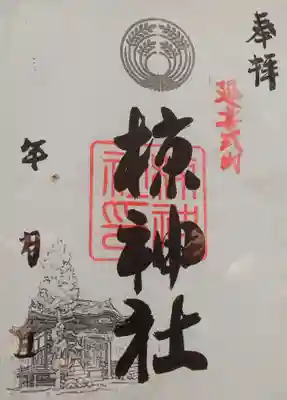 奉拝
延喜式内
椋神社
椋神社印
年月日